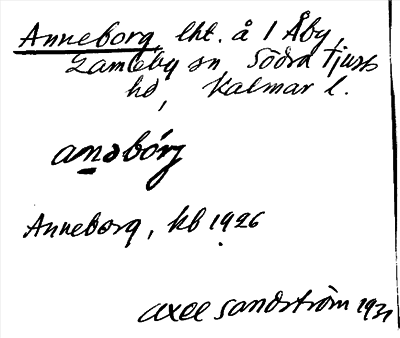 Anneborg, lht. å 1 Åby,
sn, Södra Tjusts
hd, Kalmar l.
anəbórj
Anneborg, kb 1926
Axel Sandström 1931